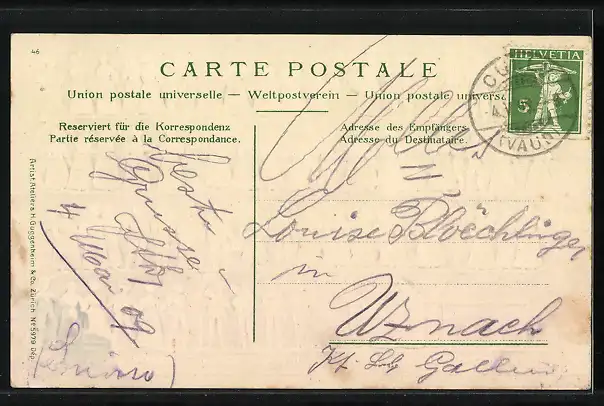 46
CARTE POSTALE
Union postale universelle — Weltpostverein — Union postale universe
Reserviert für die Korrespondenz
Partie réservée à la Correspondance.
Adresse des Empfängers.
Adresse du Destinataire.
HELVETIA
5
(VAUD)
Artist. Ateliers H. Guggenheim & Co., Zürich. No 5979 Dép.
Beste
Grüsse
4 Mai 09
Louise Blöchlinger
in
Uznach
Kt. St. Gallen